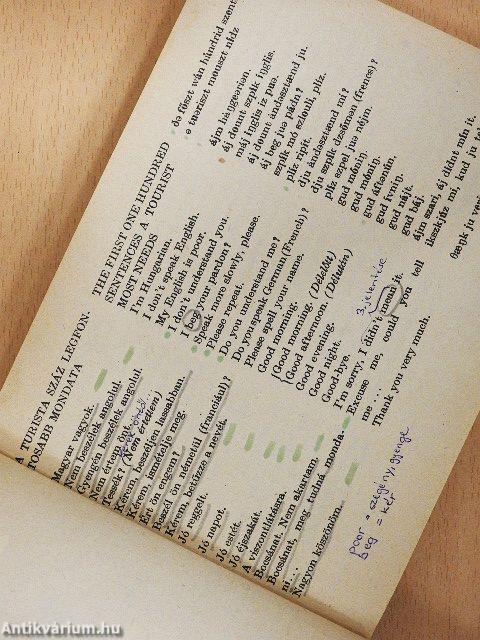 A TURISTA SZÁZ LEGFON-
TOSABB MONDATA
Magyar vagyok.
Nem beszélek angolul.
Gyengén beszélek angolul.
Nem értem önt.
Tessék? (Nem értettem)
Kérem, beszéljen lassabban.
Kérem, ismételje meg.
Ért ön engem?
Beszél ön németül (franciául)?
Kérem, betűzze a nevét.
Jó reggelt.
Jó napot.
Jó estét.
Jó éjszakát.
A viszontlátásra.
Bocsánat, Nem akartam.
Bocsánat, meg tudná monda-
ni....
Nagyon köszönöm.
poor = szegény, gyenge
beg = kér
THE FIRST ONE HUNDRED
SENTENCES A TOURIST
MOST NEEDS
I'm Hungarian.
I don't speak English.
My English is poor.
I don't understand you.
I beg your pardon?
Speak more slowly, please.
Please repeat.
Do you understand me?
Do you speak German (french)?
Please spell your name.
Good morning.
Good morning. (Délelőtt)
Good afternoon. (Délután)
Good evening.
Good night.
Good-bye.
I'm sorry, I didn't mean it.
Excuse me, could you tell
me ...
Thank you very much.
3 jelentése
də föszt wán hándrid szent
ə tuəriszt mouszt nídz
ájm hángeəriən.
áj dount szpík inglis.
máj inglis iz puə.
áj dount ándəsztænd ju.
áj beg juə pádn?
szpík mó szlouli, plíz.
plíz ripít.
dju ándəsztænd mi?
dju szpík dzsömən (frencs)?
plíz szpel juə néjm.
gud mónin.
gud mónin.
gud áftənún.
gud ívnin.
gud nájt.
gud báj.
ájm szari, áj didnt mín it.
ikszkjúz mi, kud ju
Antikvárium.hu